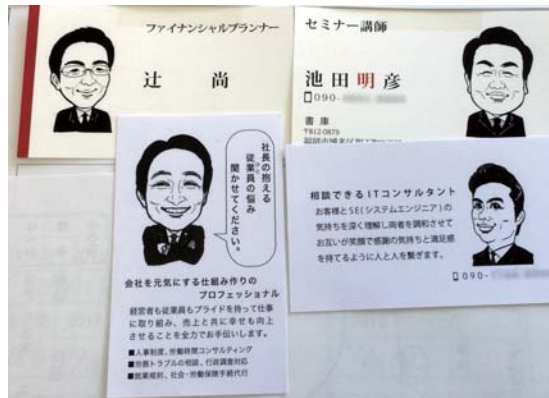 ファイナンシャルプランナー
辻 尚
セミナー講師
池田明彦
090-
書庫
〒812-0879
社長の抱える
従業員の悩み
聞かせてください。
会社を元気にする仕組み作りの
プロフェッショナル
経営者も従業員もプライドを持って仕事
に取り組み、売上と共に幸せも向上
させることを全力でお手伝いします。
■人事制度、労働時間コンサルティング
■労務トラブルの相談、行政調査対応
■就業規則、社会・労働保険手続代行
相談できるITコンサルタント
お客様とSE(システムエンジニア)の
気持ちを深く理解し両者を調和させて
お互いが笑顔で感謝の気持ちと満足感
を持てるように人と人を繋ぎます。
090-